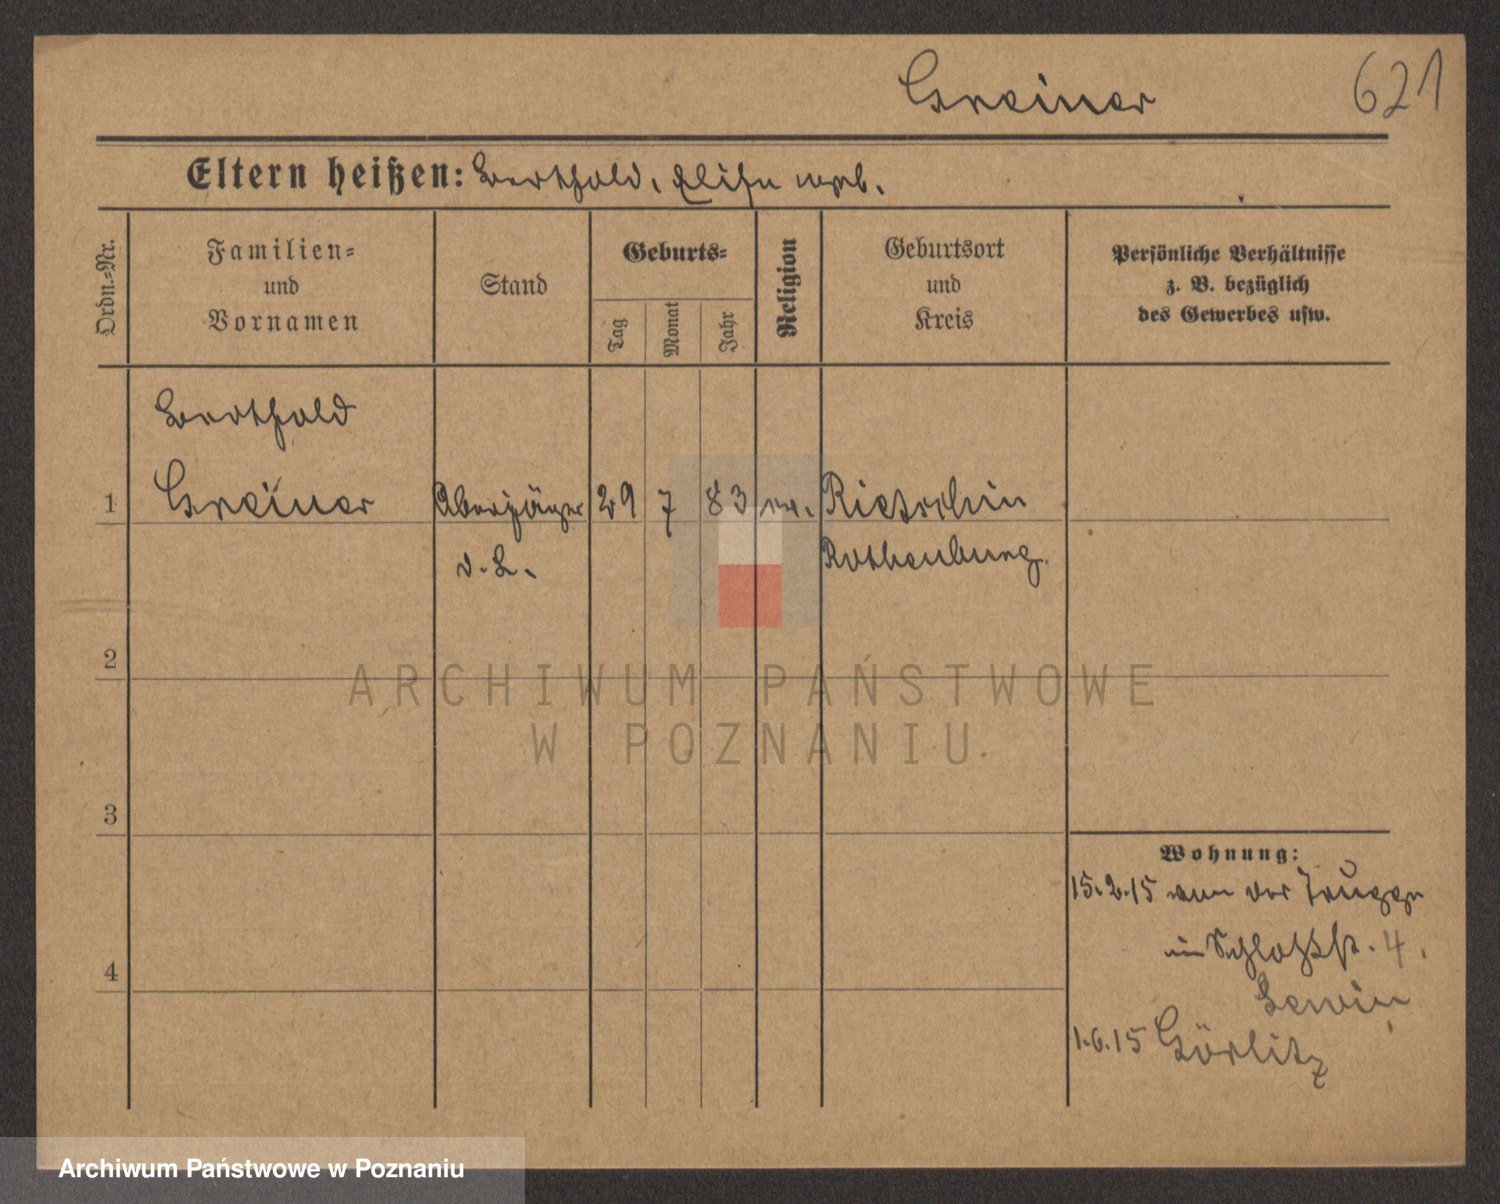 Greiner
621
Eltern heißen: Berthold, Elise geb.
Ordn.-Nr.
Familien-
und
Vornamen
Stand
Geburts-
Tag
Monat
Jahr
Religion
Geburtsort
und
Kreis
Persönliche Verhältnisse
z. B. bezüglich
des Gewerbes usw.
Berthold
1 Greiner Oberjäger 29 7 83 ev. Rietschin
d. L. Rothenburg
2
3
4
Wohnung:
15.2.15 von der Truppe
in Schloßstr. 4.
Lewin
1.6.15 Görlitz
ARCHIWUM PAŃSTWOWE
W POZNANIU
Archiwum Państwowe w Poznaniu